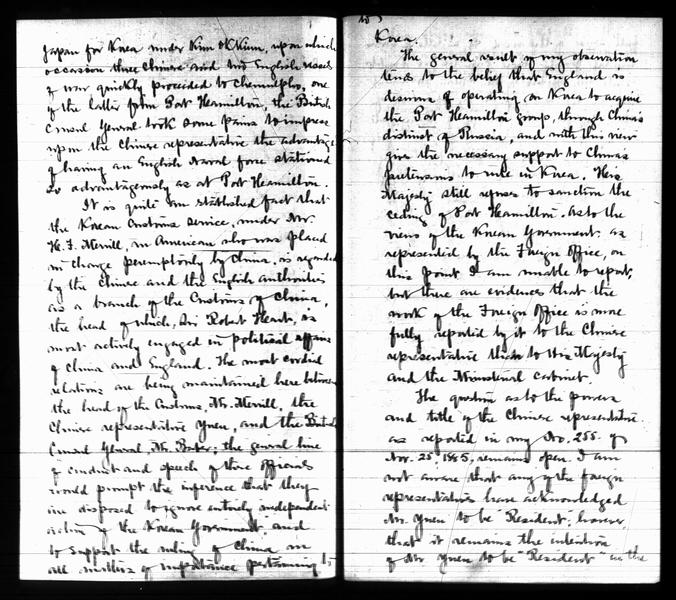 Japan for Korea under Kim Ok Kiun, upon which
occasion three Chinese and two English vessels
of war quickly proceeded to Chemulpho, one
of the latter from Port Hamilton, the British
Consul General took some pains to impress
upon the Chinese representative the advantage
of having an English Naval force stationed
so advantageously as at Port Hamilton.
It is quite an established fact that
the Korean Customs service, under Mr.
H. F. Merrill, an American who was placed
in charge peremptorily by China, is regarded
by the Chinese and the English authorities
as a branch of the Customs of China,
the head of which, Sir Robert Heart, is
most actively engaged in political affairs
of China and England. The most cordial
relations are being maintained here between
the head of the Customs, Mr. Merrill, the
Chinese representative Yuen, and the British
Consul General, Mr. Baber; the general line
of conduct and speech of these officials
would prompt the inference that they
are disposed to ignore entirely independent
action of the Korean Government, and
to support the ruling of China in
all matters of importance pertaining to
Korea.
The general result of my observation
tends to the belief that England is
desirous of operating on Korea to acquire
the Port Hamilton group, through China's
distrust of Russia, and with this view
give the necessary support to China's
pretensions to rule in Korea. His
Majesty still refuses to sanction the
ceding of Port Hamilton. As to the
views of the Korean Government as
represented by the Foreign Office, on
this point I am unable to report,
but there are evidences that the
work of the Foreign Office is more
fully reported by it to the Chinese
representative than to His Majesty
and the Ministerial cabinet.
The question as to the powers
and title of the Chinese representative
as reported in my No. 255 of
Nov. 25, 1885, remains open. I am
not aware that any of the foreign
representatives have acknowledged
Mr. Yuen to be "Resident"; however,
that it remains the intention
of Mr. Yuen to be "Resident" in the